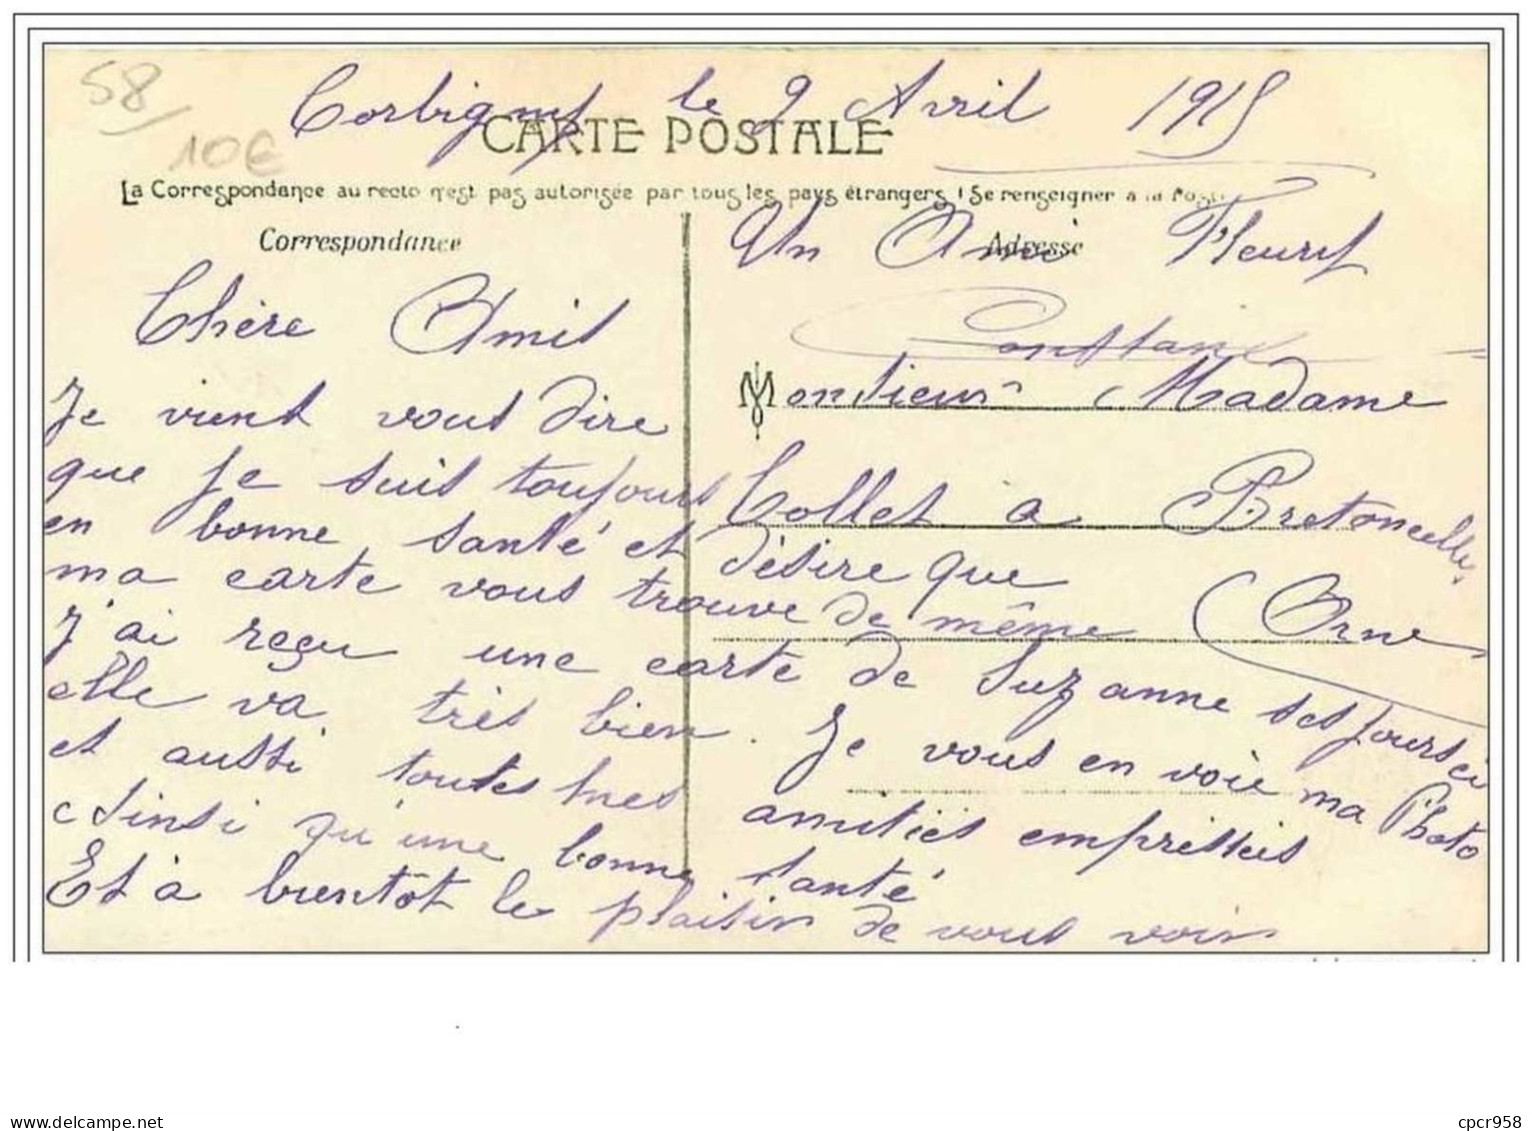 58/
10€
Corbigny le 9 Avril 1915
CARTE POSTALE
La Correspondance au recto n'est pas autorisée par tous les pays étrangers (Se renseigner à la Poste
Correspondance
Adresse
Un Ami Fleury
Constant
Chère Amis
Monsieur Madame
Collet à Bretoncelles
(Orne
Je vient vous dire
que je suis toujours
en bonne santé et désire que
ma carte vous trouve de même
J'ai reçu une carte de Suzanne ses jours ci
elle va très bien. Je vous en voie ma Photo
et aussi toutes mes amitiés empréssés
Ainsi qu'une bonne santé
Et à bientôt le plaisir de vous voir
cpcr958